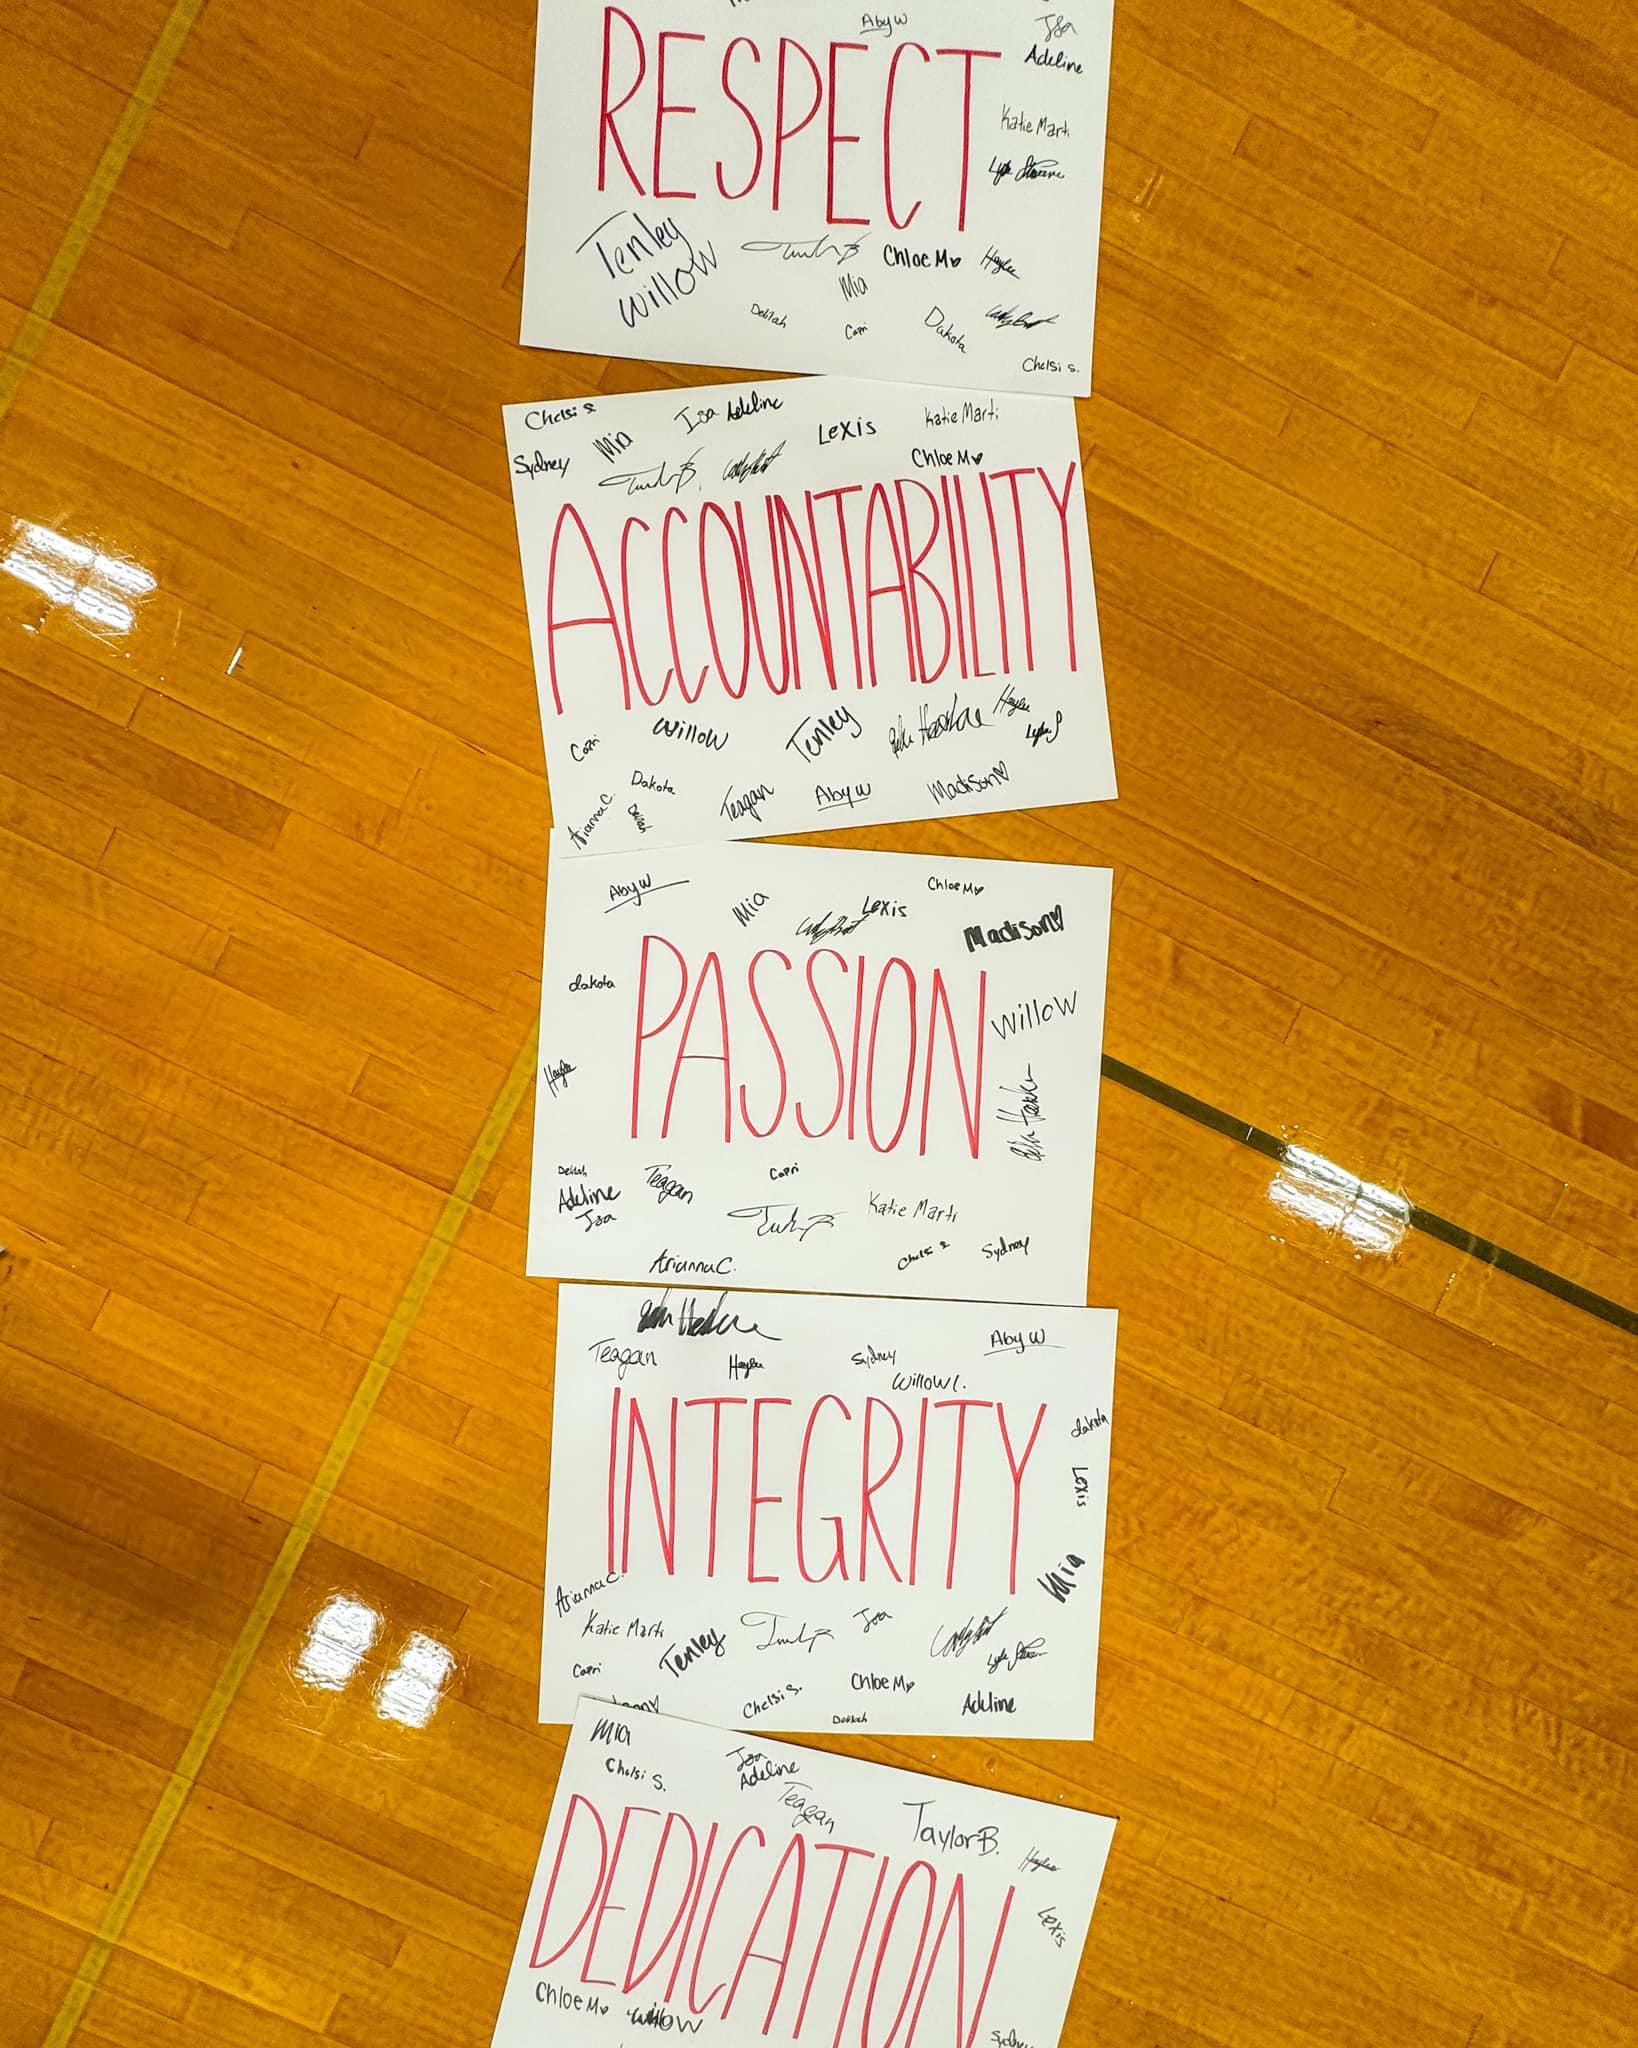 Aby W
Isa
Adeline
RESPECT
Katie Marti
Tenley
Willow
Chloe M
Haylee
Mia
Delilah
Capri
Dakota
Chelsi S.
Chelsi S
Mia
Isa Adeline
Lexis
Katie Marti
Sydney
Chloe M
ACCOUNTABILITY
Willow
Tenley
Haylee
Capri
Dakota
Teagan
Aby W
Madison
Arianna C.
Delilah
Aby W
Mia
Lexis
Chloe M
Madison
dakota
PASSION
Willow
Haylee
Delilah
Teagan
Capri
Adeline
Isa
Katie Marti
Arianna C.
Chelsi S
Sydney
Teagan
Haylee
Sydney
Aby W
Willow C.
INTEGRITY
dakota
Lexis
Mia
Arianna C.
Katie Marti
Tenley
Isa
Capri
Chelsi S.
Chloe M
Delilah
Adeline
Mia
Chelsi S.
Isa
Adeline
Teagan
Taylor B.
Haylee
DEDICATION
Lexis
Chloe M
Willow
Sydney